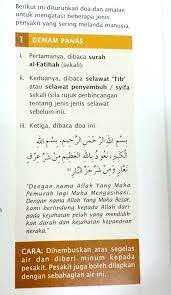 Berikut ini diturunkan doa dan amalan
untuk mengatasi beberapa jenis
penyakit yang sering melanda manusia.
1 DEMAM PANAS
i. Pertamanya, dibaca surah
al-Fatihah (sekali).
ii. Keduanya, dibaca selawat 'Tib'
atau selawat penyembuh / syifa
sekali (sila rujuk perbincangan
tentang jenis-jenis selawat
sebelum ini).
iii. Ketiga, dibaca doa ini:
بِسْمِ اللهِ الرَّحْمَنِ الرَّحِيمِ، بِسْمِ اللهِ
الْكَبِيْرِ، نَعُوْذُ بِاللهِ الْعَظِيْمِ مِنْ شَرِّ عِرْقٍ
نَعَّارٍ وَمِنْ شَرِّ حَرِّ النَّارِ
"Dengan nama Allah Yang Maha
Pemurah lagi Maha Mengasihani.
Dengan nama Allah Yang Maha Besar,
kami berlindung kepada Allah dari-
pada kejahatan pelah yang mendidih-
kan darah dan kejahatan kepanasan
neraka."
CARA: Dihembuskan atas segelas
air dan diberi minum kepada
pesakit. Pesakit juga boleh dilapkan
dengan sebahagian air ini.